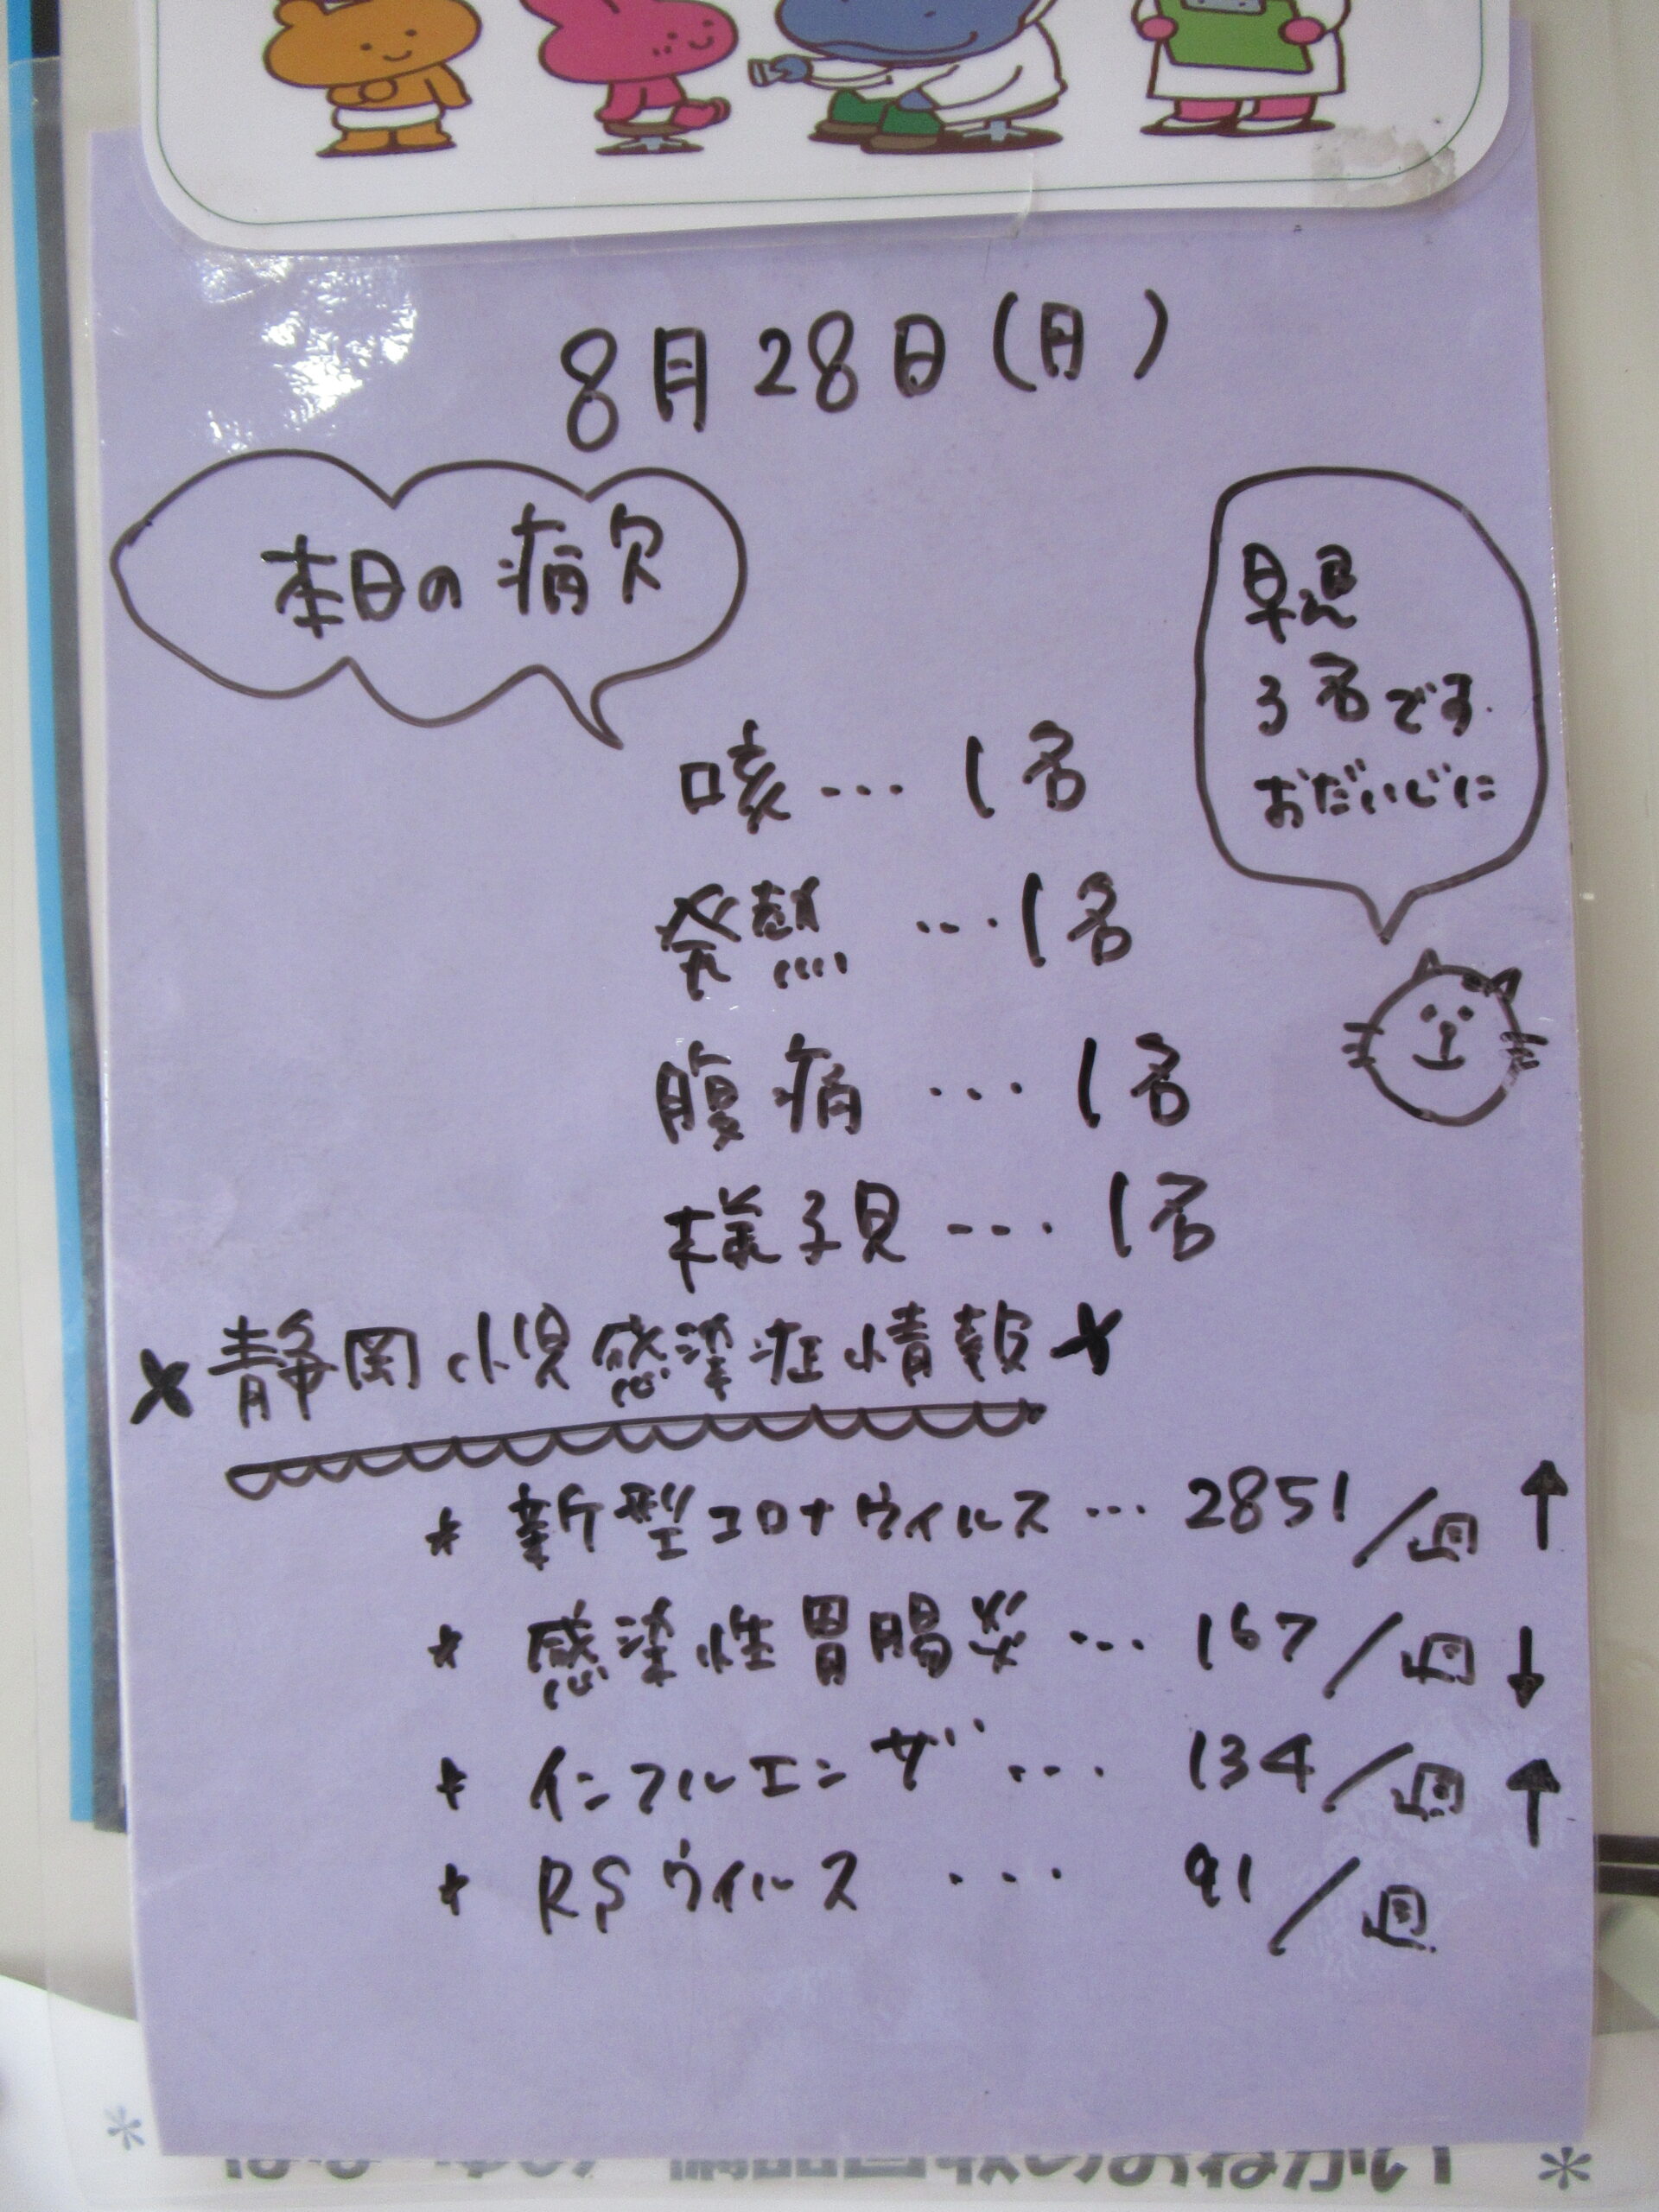 8月28日(月)
本日の病欠
早退
3名です
おだいじに
咳…1名
発熱…1名
腹痛…1名
様子見…1名
静岡小児感染症情報
* 新型コロナウィルス…2851/週↑
* 感染性胃腸炎…167/週↓
* インフルエンザ…134/週↑
* RSウィルス…91/週